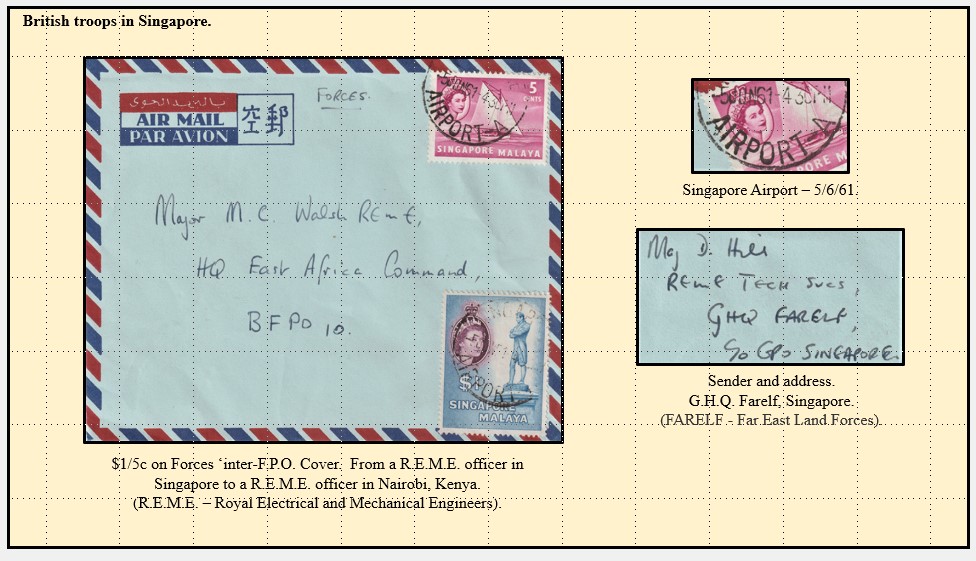 British troops in Singapore.
بالبريد الجوى
AIR MAIL
PAR AVION
空郵
FORCES.
5
CENTS
5 JUN 61 - 4 30 PM
AIRPORT-A
SINGAPORE MALAYA
Major M. C. Walsh REME,
HQ East Africa Command,
BFPO 10.
$1
AIRPORT
SINGAPORE
MALAYA
$1/5c on Forces ‘inter-F.P.O. Cover. From a R.E.M.E. officer in
Singapore to a R.E.M.E. officer in Nairobi, Kenya.
(R.E.M.E. – Royal Electrical and Mechanical Engineers).
AIRPORT-A
Singapore Airport – 5/6/61.
Maj D. Hill
REME TECH SVCS,
GHQ FARELF,
c/o GPO SINGAPORE.
Sender and address.
G.H.Q. Farelf, Singapore.
(FARELF - Far East Land Forces).